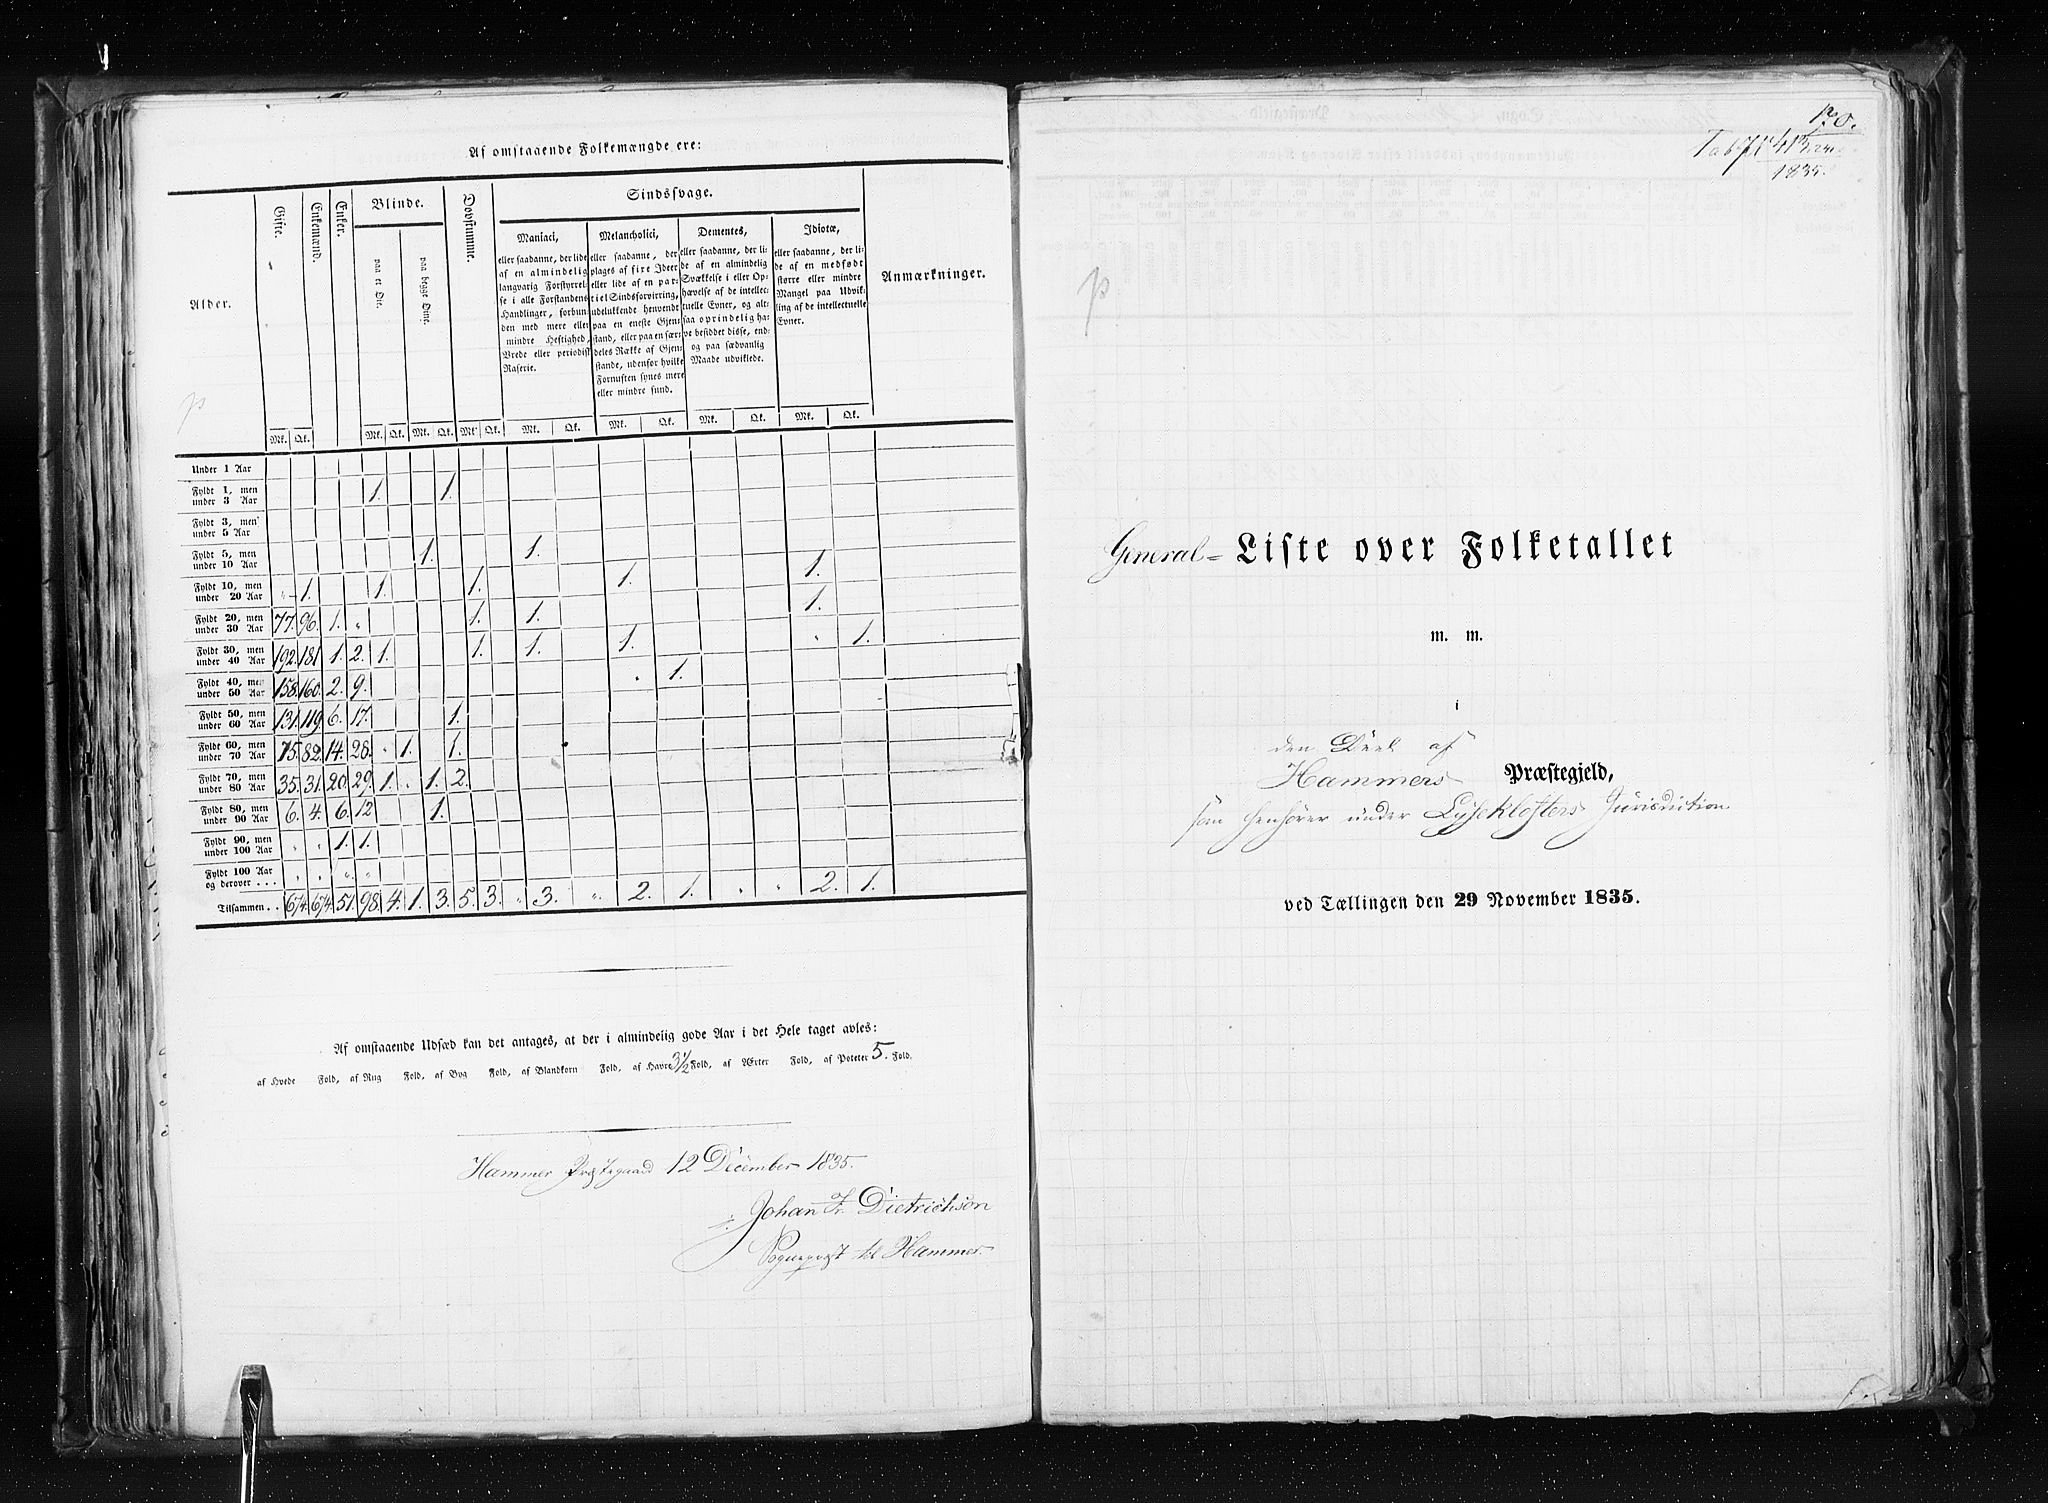 Af omstaaende Folkemængde ere:
Alder.
Gifte.
Enkemænd.
Enker.
Blinde.
paa et Øie.
paa begge Øine.
Døvstumme.
Sindssvage.
Maniaci,
eller saadanne, der lide
af en almindelig
langvarig Forstyrrel-
se i alle Forstandens
Handlinger, forbun-
den med mere eller
mindre Heftighed,
Vrede eller periodisk
Raserie.
Melancholici,
eller saadanne, der
plages af fixe Ideer
eller lide af en par-
tiel Sindsforvirring,
udelukkende henvendt
paa en eneste Gjen-
stand, eller paa en sær-
deles Række af Gjen-
stande, udenfor hvilke
Fornuften synes mere
eller mindre sund.
Dementes,
eller saadanne, der li-
de af en almindelig
Svækkelse i eller Op-
hævelse af de intellec-
tuelle Evner, og alt-
saa oprindelig ha-
ve besiddet disse, end-
og paa sædvanlig
Maade udviklede.
Idiotæ,
eller saadanne, der li-
de af en medfødt
større eller mindre
Mangel paa Udvik-
ling af de intellectuelle
Evner.
Anmærkninger.
Mk. Qk. Mk. Qk. Mk. Qk. Mk. Qk. Mk. Qk. Mk. Qk. Mk. Qk. Mk. Qk.
Under 1 Aar
Fyldt 1, men
under 3 Aar 1. 1.
Fyldt 3, men
under 5 Aar
Fyldt 5, men
under 10 Aar 1. 1.
Fyldt 10, men
under 20 Aar " 1. 1. 1. 1. 1.
Fyldt 20, men
under 30 Aar 77. 96. 1. " 1. 1. 1.
Fyldt 30, men
under 40 Aar 192. 181 1. 2. 1. 1. 1. 1. " 1.
Fyldt 40, men
under 50 Aar 158. 160. 2. 9. " 1.
Fyldt 50, men
under 60 Aar 131. 119 6. 17. 1.
Fyldt 60, men
under 70 Aar 75. 82. 14. 28. " 1. 1.
Fyldt 70, men
under 80 Aar 35. 31. 20. 29. 1. " 1. 2.
Fyldt 80, men
under 90 Aar 6. 4. 6. 12 1.
Fyldt 90, men
under 100 Aar " " 1. 1.
Fyldt 100 Aar
og derover . . . " " " "
Tilsammen . . 674. 674. 51. 98. 4. 1. 3. 5. 3. " 3. " 2. 1. " " 2. 1.
Af omstaaende Udsæd kan det antages, at der i almindelig gode Aar i det Hele taget avles:
af Hvede Fold, af Rug Fold, af Byg Fold, af Blandkorn Fold, af Havre 3½ Fold, af Ærter Fold, af Poteter 5. Fold.
Hammer Præstegaard 12 December 1835.
Johan Fr. Dietrichson
Sognepræst til Hammer
1835.
General- Liste over Folketallet
m. m.
i
den Deel af
Hammers Præstegjeld,
som henhører under Lyseklosters Jurisdiction
ved Tællingen den 29 November 1835.